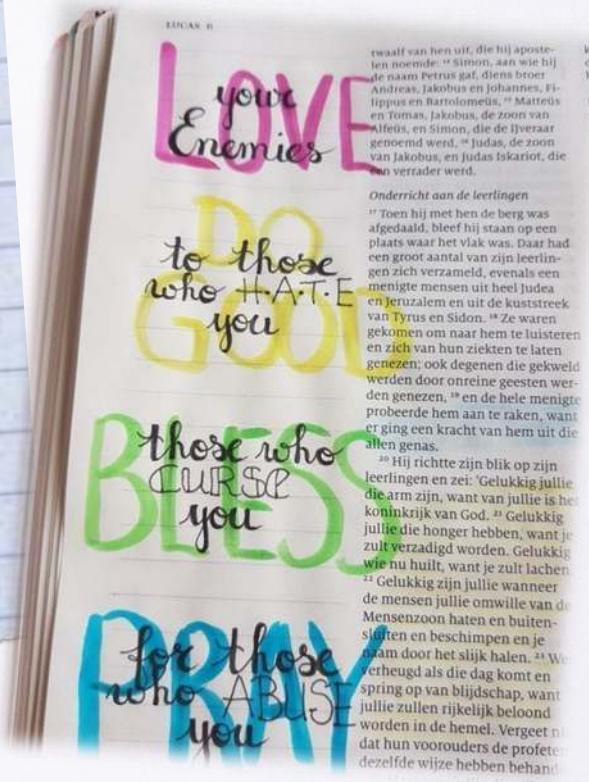 LUCAS 6
LOVE
your
Enemies
DO
GOOD
to those
who H·A·T·E
you
BLESS
those who
CURSE
you
PRAY
for those
who ABUSE
you
twaalf van hen uit, die hij aposte-
len noemde: ¹⁴ Simon, aan wie hij
de naam Petrus gaf, diens broer
Andreas, Jakobus en Johannes, Fi-
lippus en Bartolomeüs, ¹⁵ Matteüs
en Tomas, Jakobus, de zoon van
Alfeüs, en Simon, die de IJveraar
genoemd werd, ¹⁶ Judas, de zoon
van Jakobus, en Judas Iskariot, die
een verrader werd.
Onderricht aan de leerlingen
¹⁷ Toen hij met hen de berg was
afgedaald, bleef hij staan op een
plaats waar het vlak was. Daar had
een groot aantal van zijn leerlin-
gen zich verzameld, evenals een
menigte mensen uit heel Judea
en Jeruzalem en uit de kuststreek
van Tyrus en Sidon. ¹⁸ Ze waren
gekomen om naar hem te luisteren
en zich van hun ziekten te laten
genezen; ook degenen die gekweld
werden door onreine geesten wer-
den genezen, ¹⁹ en de hele menigte
probeerde hem aan te raken, want
er ging een kracht van hem uit die
allen genas.
²⁰ Hij richtte zijn blik op zijn
leerlingen en zei: 'Gelukkig jullie
die arm zijn, want van jullie is het
koninkrijk van God. ²¹ Gelukkig
jullie die honger hebben, want je
zult verzadigd worden. Gelukkig
wie nu huilt, want je zult lachen.
²² Gelukkig zijn jullie wanneer
de mensen jullie omwille van de
Mensenzoon haten en buiten-
sluiten en beschimpen en je
naam door het slijk halen. ²³ We
verheugd als die dag komt en
spring op van blijdschap, want
jullie zullen rijkelijk beloond
worden in de hemel. Vergeet
dat hun voorouders de profeten
dezelfde wijze hebben behand